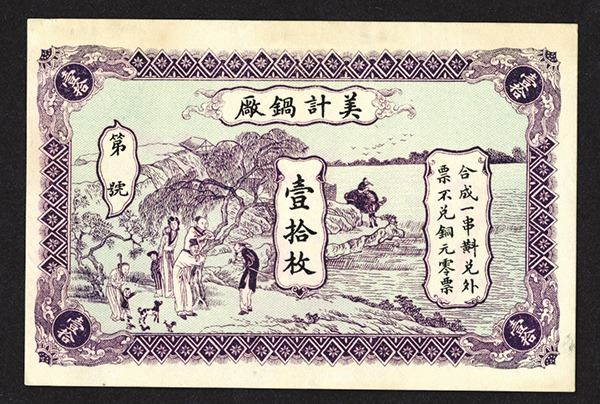 壹拾
壹拾
美計鍋廠
第　號
壹拾枚
合成一串斢兑外
票不兑銅元零票
壹拾
壹拾